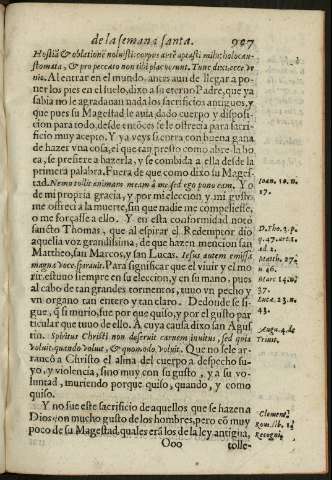 de la semana santa. 907
Hostiā & oblationē noluisti: corpus autē aptasti mihi: holocau-
stomata, & pro peccato non tibi placuerunt. Tunc dixi, ecce ve-
nio. Al entrar en el mundo, antes aun de llegar a po-
ner los pies en el suelo, dixo a su eterno Padre, que ya
sabia no le agradauan nada los sacrificios antiguos, y
que pues su Magestad le auia dado cuerpo y disposi-
cion para todo, desde entōces se le ofrecia para sacri-
ficio muy acepto. Y ya veys si cierra con buena gana
de hazer vna cosa, el que tan presto como abre la bo
ca, se prefiere a hazerla, y se combida a ella desde la
primera palabra. Fuera de que como dixo su Mages-
tad. Nemo tollit animam meam à me sed ego pono eam. Yo
de mi propria gracia, y por mi eleccion y mi gusto
me ofreci a la muerte, sin que nadie me compeliesse,
o me forçasse a ello. Y en esta conformidad noto
sancto Thomas, que al espirar el Redemptor dio
aquella voz grandissima, de que hazen mencion san
Mattheo, san Marcos, y san Lucas. Iesus autem emissa
magna voce expirauit. Para significar que el viuir y el mo
rir, estuuo siempre en su eleccion, y en su mano, pues
al cabo de tan grandes tormentos, tuuo vn pecho y
vn organo tan entero y tan claro. De donde se si-
gue, q̃ si murio, fue por que quiso, y por el gusto par
ticular que tuuo de ello. A cuya causa dixo san Agus
tin. Spiritus Christi non deseruit carnem inuitus, sed quia
voluit, quando voluit, & quomodo voluit. Que no se le ar-
rancò a Christo el alma del cuerpo a despecho su-
yo, y violencia, sino muy con su gusto, y a su vo-
luntad, muriendo porque quiso, quando, y como
quiso.
Y no fue este sacrificio de aquellos que se hazen a
Dios con mucho gusto de los hombres, pero cō muy
poco de su Magestad, quales erā los de la ley antigua,
Ooo tolle-
Ioan. 10. n.
17.
D. Tho. 3. p.
q. 47. art. 1.
ad 2.
Matth. 27.
n. 46.
Marc. 14. n.
37.
Luc. 23. n.
43.
Aug. 4. de
Trinit.
Clement.
Rom. lib. 1.
Recogni.